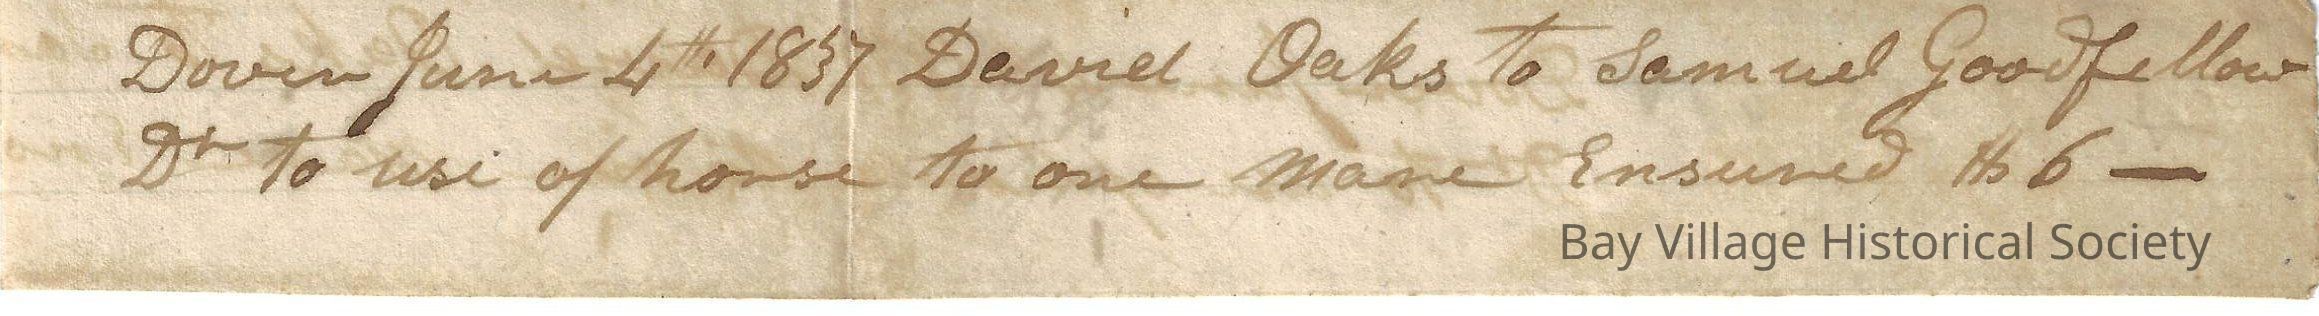 Dover June 4th 1837 David Oaks to Samuel Goodfellow
Dr to use of horse to one mare Ensured $6 —
Bay Village Historical Society